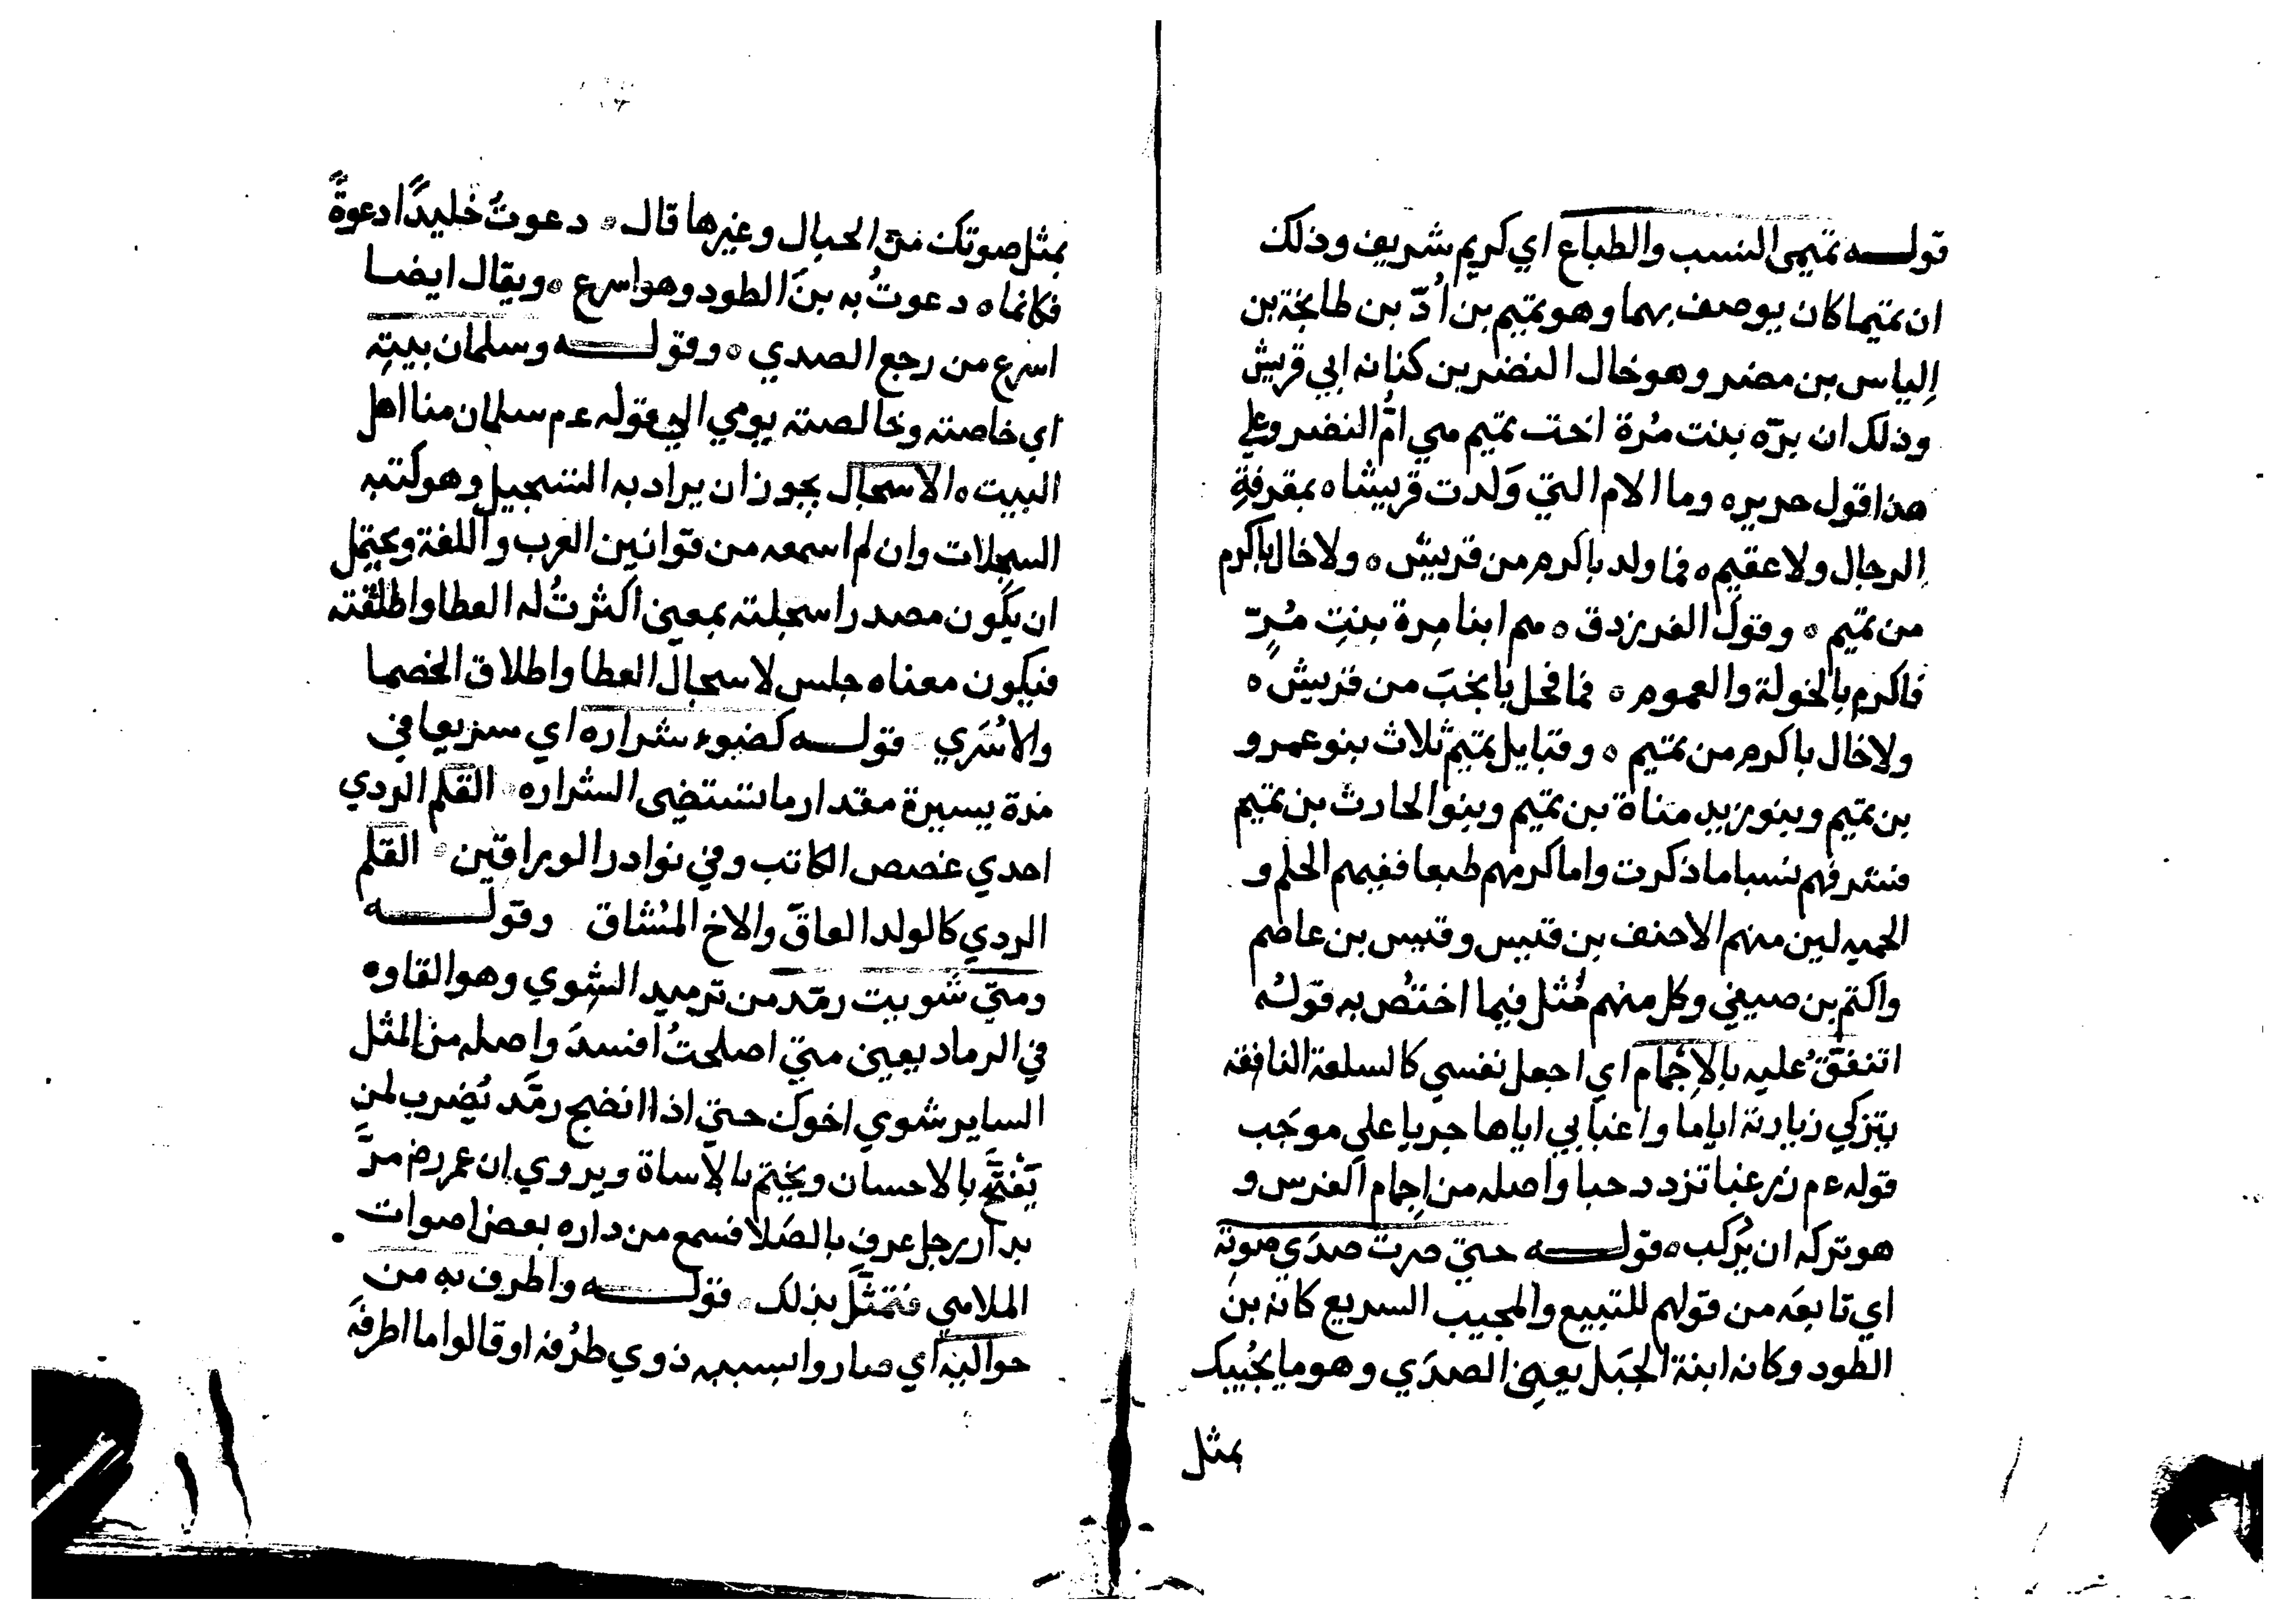 قولـــه تميمى النسب والطباع اي كريم شريف وذلك
ان تميما كان يوصف بهما وهو تميم بن اُدّ بن طابخة بن
اِلياس بن مضر وهو خال النضر بن كنانه ابي قريش
وذلك ان برّه بنت مُرة اخت تميم هي امُّ النضر وعلي
هذا قول جرير٥ وما الام التي وَلدت قريشا٥ بمقرفةِ
الرجال ولا عقيم٥ فما ولد باكرم من قريش٥ ولا خال باكرم
من تميم ٥ وقول الفرزدق ٥ هم ابنا مرة بنتِ مُرِّ
فاكرم بالخولة والعموم٥ فما فحل بانجبَ من قريش٥
ولا خال باكرم من تميم ٥ وقبايل تميم ثلاث بنو عمرو
بن تميم وبنو زيد مناة بن تميم وبنو الحارث بن تميم
فشرفهم نسبا ما ذكرت واما كرمهم طبعا ففيهم الحلم و
منهم الاحنف بن قيس وقيس بن عاصم
واكتم بن صيفي وكل منهم مُثل فيما اختصُ به قولُه
اتنفّقُ عليه بالاِجْمام اي اجعل نفسي كالسلعة النافقه
بتركي زيارته اياما واغبابي اياها جريا علي موجَب
قوله ءم زر غبا تزدد حبا واصله من اِجمام الفرس و
هو تركه ان يُركب ٥ قولـــه حتي صرت صدَي صوته
اي تابعَه من قولهم للتبيع والمجيب السريع كانه بنُ
الطود وكانه ابنة الجبَل يعنى الصدَي وهو ما يُجيبك
بمثل
بمثل صوتك من الجبال وغيرها قال ٥ دعوتُ خُليدًا دعوةً
فكانما ٥ دعوتُ به بنَ الطود وهو اسرع ٥ ويقال ايضا
اسرع من رجع الصدي ٥ وقولـــه وسلمان بيتِه
اي خاصته وخالصته يومي الي قوله ءم سلمان منا اهل
البيت ٥ الاسجال يجوز ان يراد به التسجيل وهو كتبه
السجلات وان لم اسمعه من قوانين العرب واللغة ويحتمل
ان يكون مصدر اسجلته بمعني اكثرتُ له العطا واطلقته
فيكون معناه جلس لاسجال العطا واطلاق الخصما
والاُسَري قولـــه كضوء شراره اي سريعا في
مدة يسيرة مقدار ما تستضى الشراره القلم الردي
احدي غصص الكاتب وفي نوادر الوراقين ٥ القلم
الردي كالولد العاقّ والاخ المُشاق وقولـــه
ومتي شويت رمّد من ترميد الشوي وهو القاوه
في الرماد يعني متي اصلحتُ افسدَ واصله من المثل
الساير شوي اخوك حتي اذا انضج رمَّد يُضرب لمن
يَفْتَتح بالاحسان ويختم بالاساة ويروي ان عمر رض مرَّ
بدار رجل عرف بالصَلاح فسمع من داره بعض اصوات
الملاهي فتمثَّل بذلك ٥ قولـــه واطرف به من
حواليه اي صاروا بسببه ذوي طرُفه او قالوا ما اطرفَه